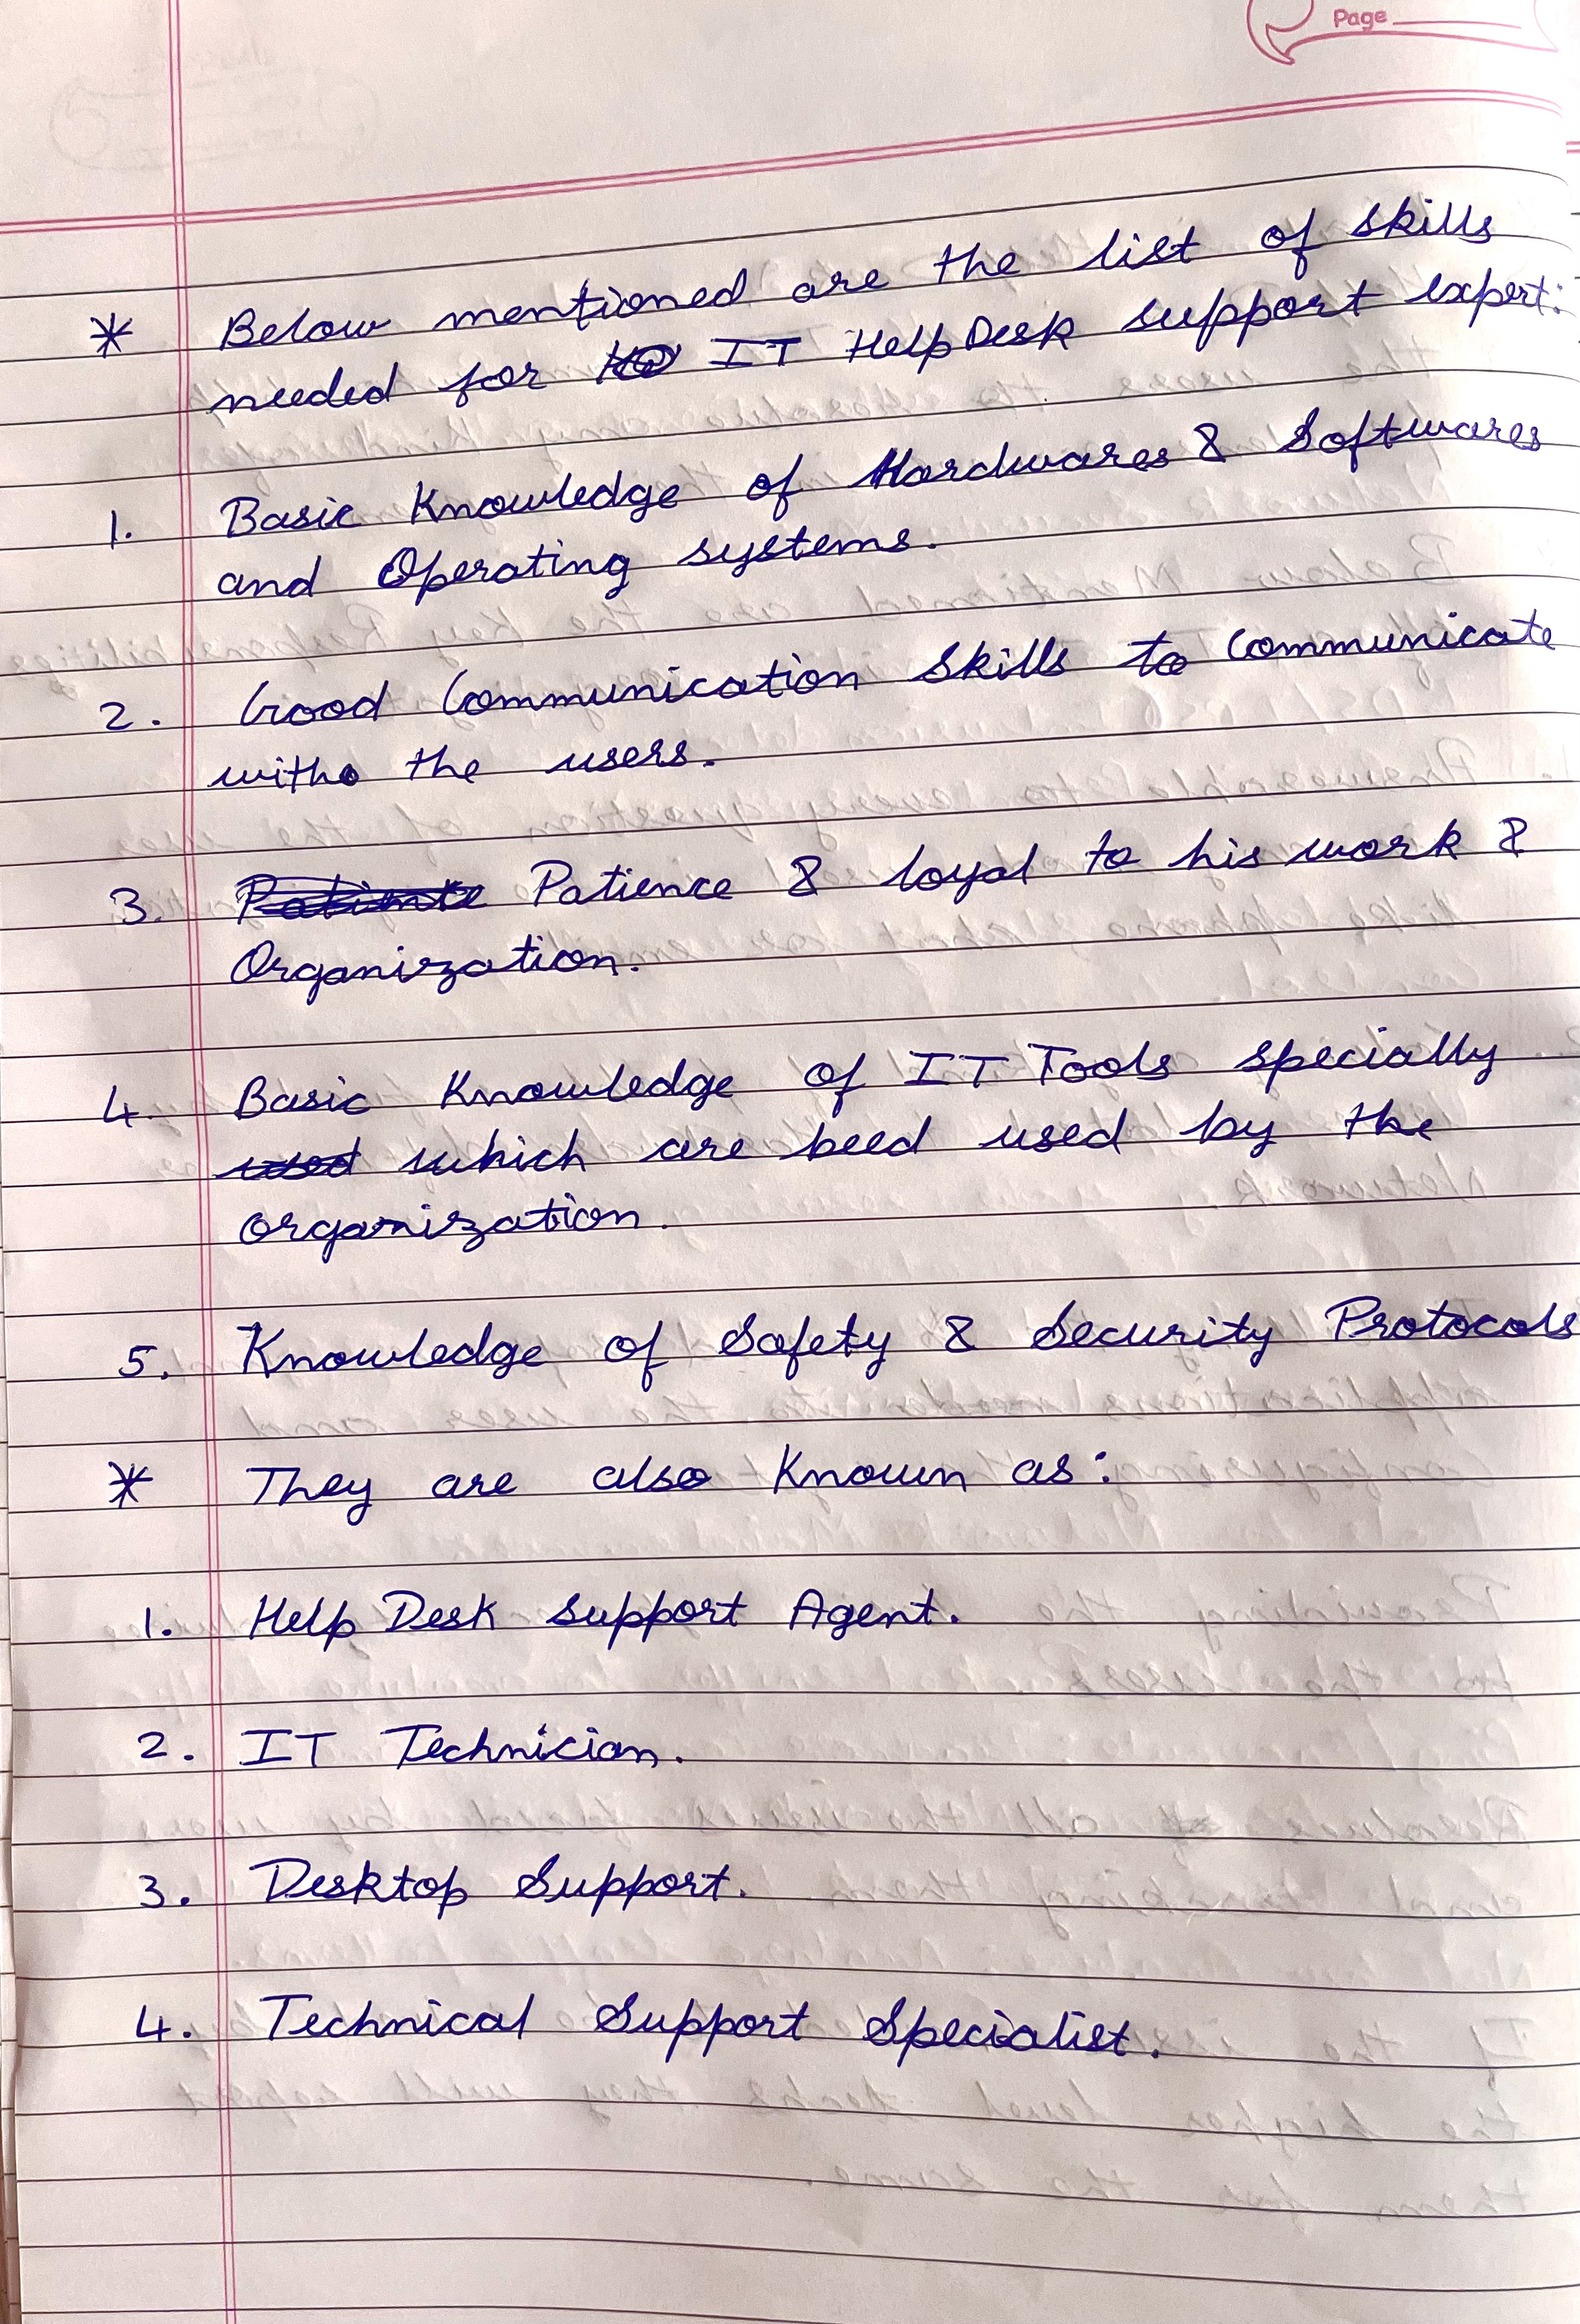 Page
* Below mentioned are the list of skills
needed for IT Help Desk support expert:
1. Basic Knowledge of Hardwares & Softwares
and Operating systems.
2. Good Communication Skills to Communicate
with the users.
3. Patience & loyal to his work &
Organization.
4. Basic Knowledge of IT Tools specially
which are beed used by the
organization.
5. Knowledge of Safety & Security Protocols
* They are also Known as:
1. Help Desk Support Agent.
2. IT Technician.
3. Desktop Support.
4. Technical Support Specialist.